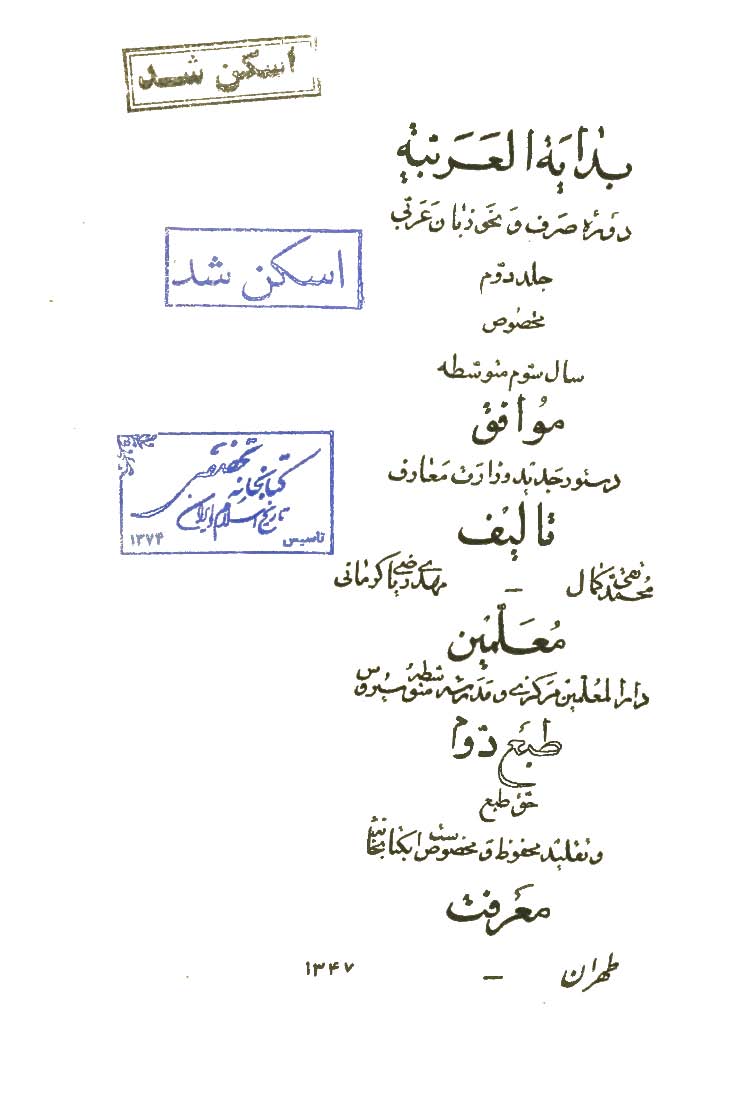 اسکن شد
بدایة العربیة
دورهٔ صرف و نحو زبان عربی
اسکن شد
جلد دوم
مخصوص
سال سوم متوسطه
موافق
دستور جدید وزارت معارف
کتابخانه تخصصی
تاریخ اسلام و ایران
تاسیس ۱۳۷۴
تالیف
محمد کمال – مهدی ضیا کرمانی
معلمین
دارالمعلمین مرکزی و مدرسه متوسطه سیروس
طبع دوم
حق طبع
و تقلید محفوظ و مخصوص است بکتابخانه
معرفت
طهران – ۱۳۴۷